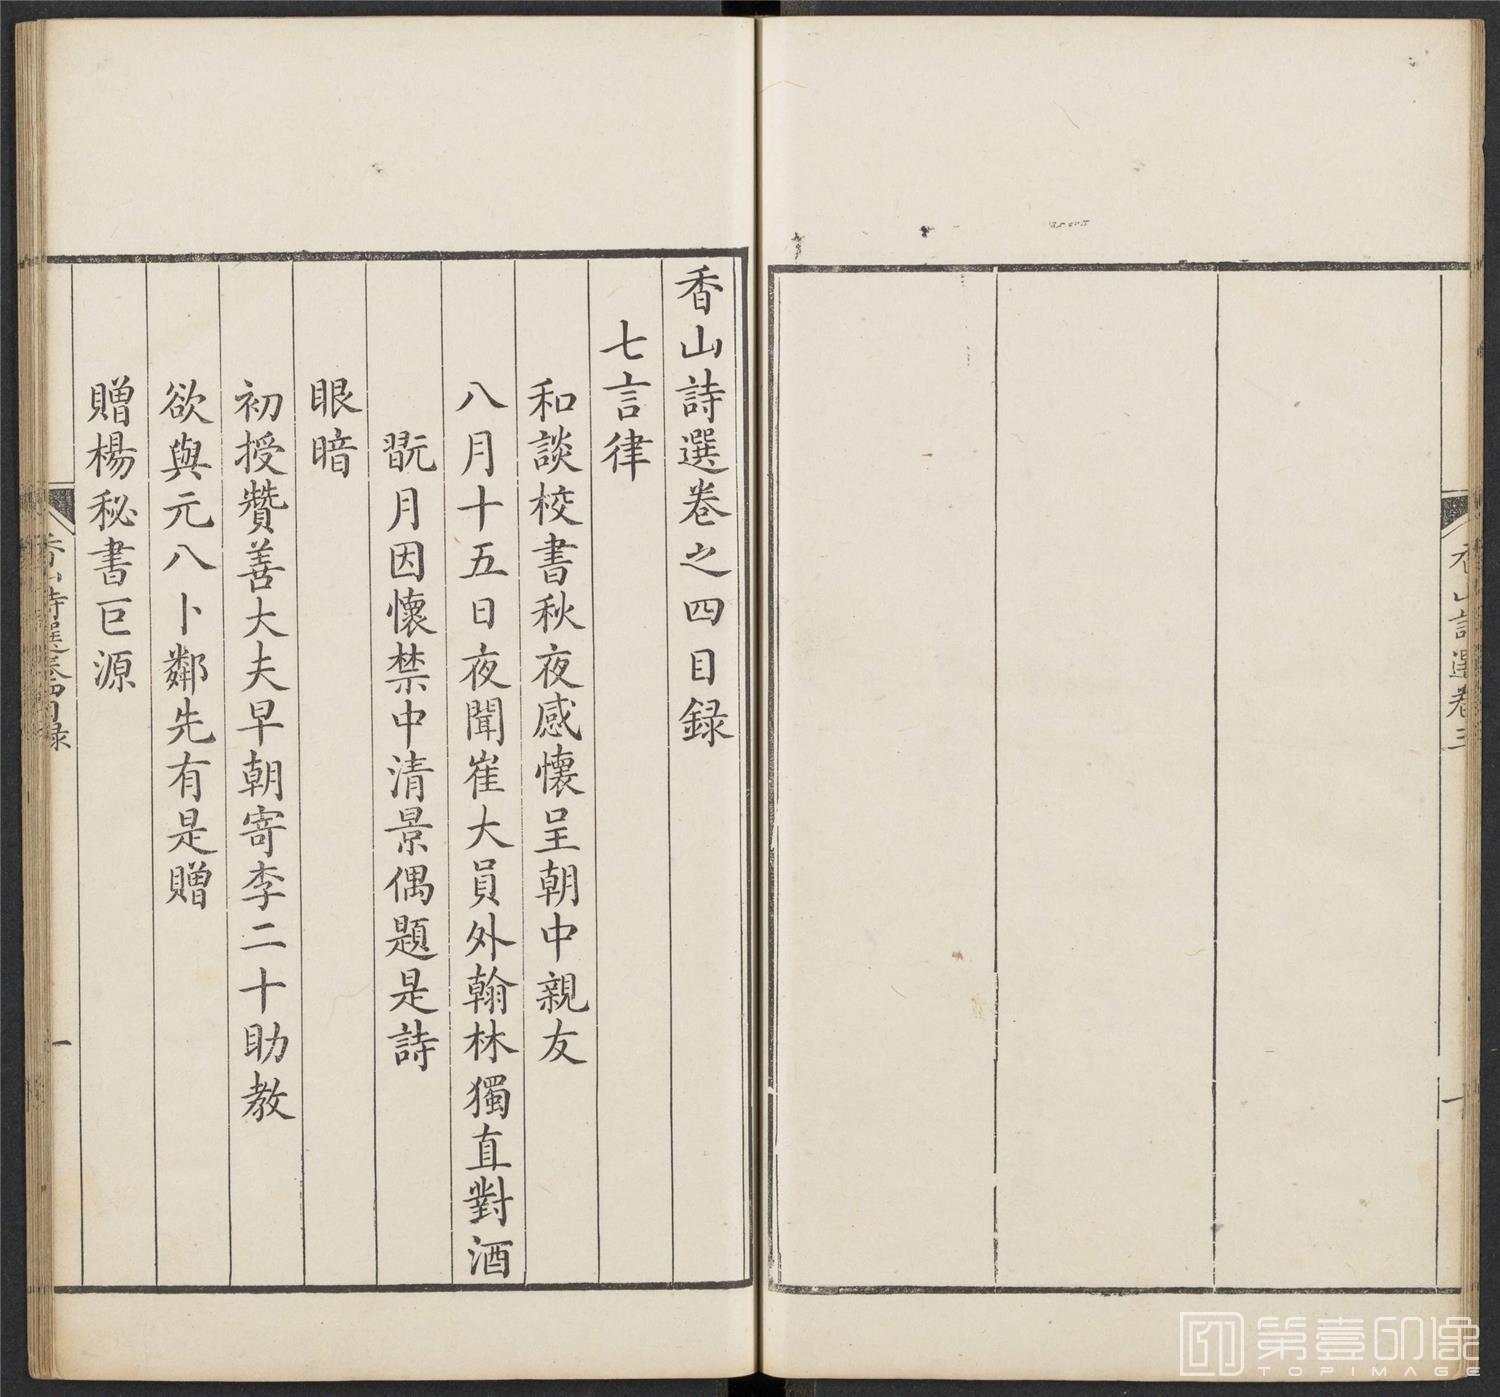 香山詩選卷三
十
香山詩選卷之四目録
七言律
和談校書秋夜感懷呈朝中親友
八月十五日夜聞崔大員外翰林獨直對酒
翫月因懷禁中清景偶題是詩
眼暗
初授贊善大夫早朝寄李二十助教
欲與元八卜鄰先有是贈
贈楊秘書巨源
香山詩選卷四目録
一
第壹印像
TOPIMAGE